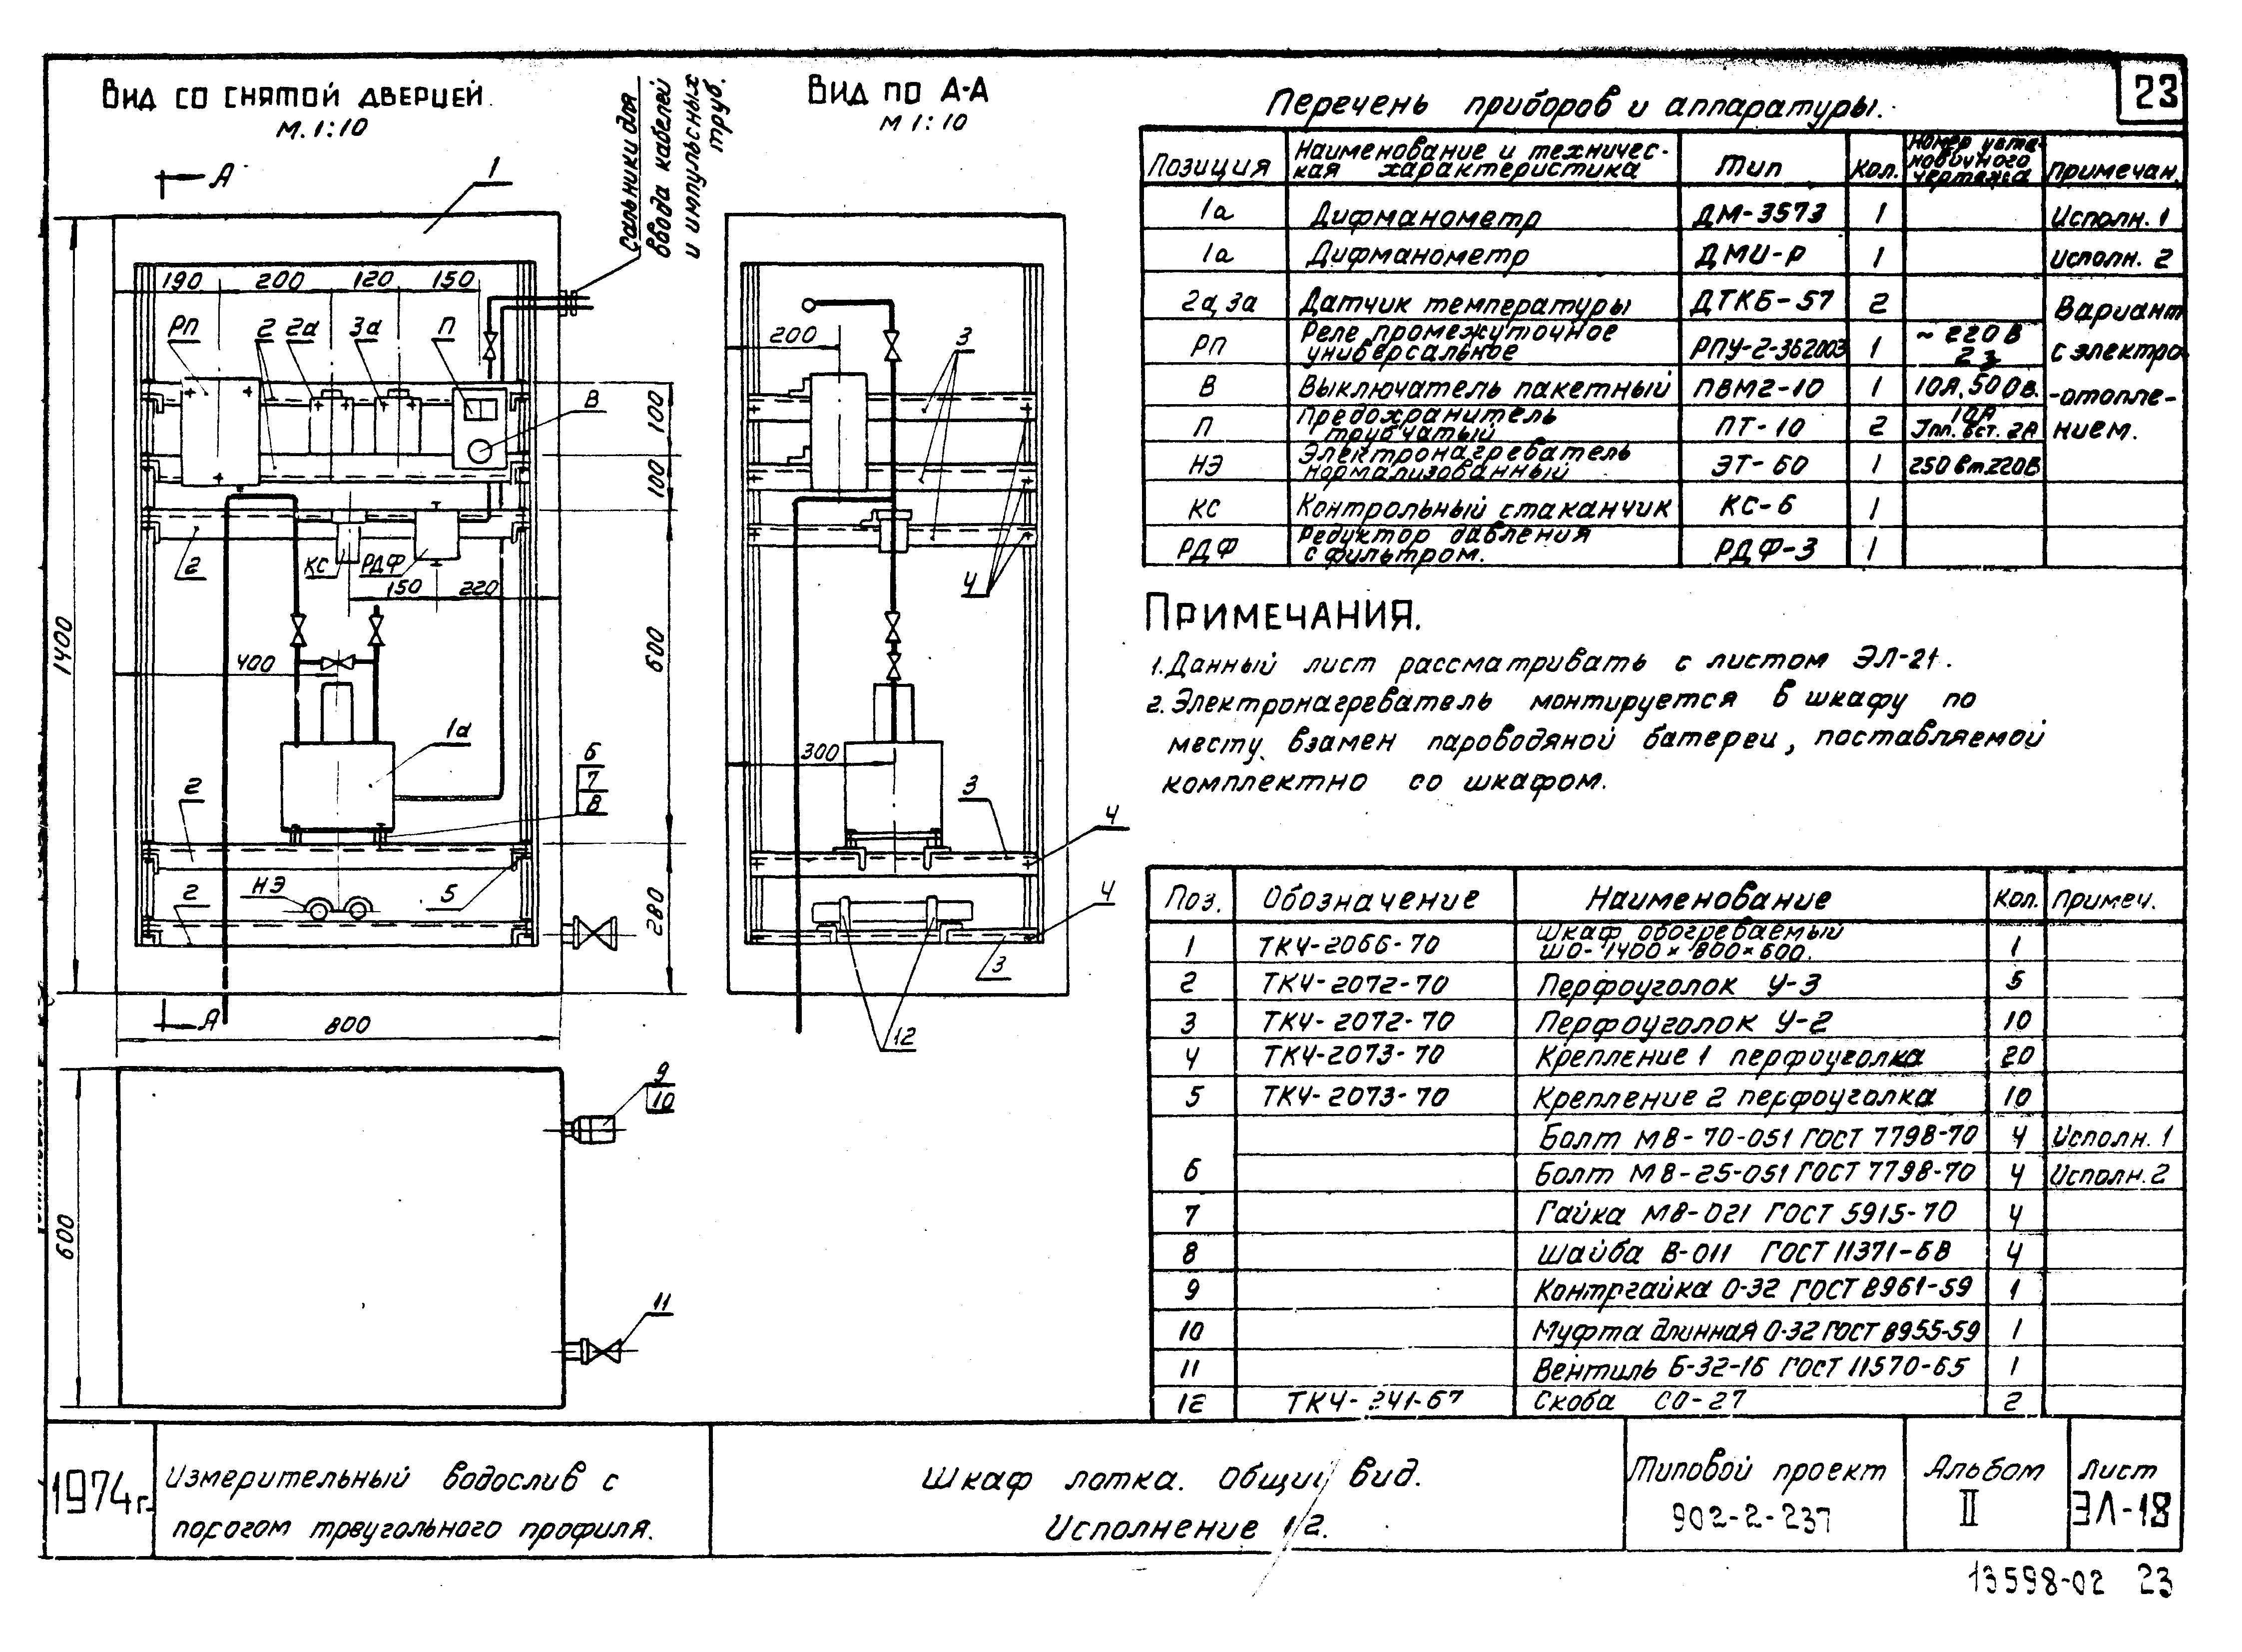 23
Вид со снятой дверцей.
М. 1:10
Сальники для
ввода кабелей
и импульсных
труб.
Вид по А-А
М 1:10
А
1
190 200 120 150
РП 2 2а 3а П
В
100
100
2
КС РДФ
150 220
600
1400
400
1а
6
7
8
2
НЭ
2
5
280
А
800
200
3
4
300
3
4
4
3
12
9
10
600
11
Перечень приборов и аппаратуры.
Позиция Наименование и техничес- Тип Кол. Номер уста- Примечан.
кая характеристика новочного
чертежа
1а Дифманометр ДМ-3573 1 Исполн. 1
1а Дифманометр ДМИ-Р 1 Исполн. 2
2а, 3а Датчик температуры ДТКБ-57 2 Вариант
РП Реле промежуточное РПУ-2-362003 1 ~220В с электро
универсальное 2з
В Выключатель пакетный ПВМ2-10 1 10А, 500В. -отопле-
П Предохранитель ПТ-10 2 10А нием.
трубчатый Iпл. вст. 2А
НЭ Электронагреватель ЭТ-60 1 250 вт 220В
нормализованный
КС Контрольный стаканчик КС-6 1
РДФ Редуктор давления РДФ-3 1
с фильтром.
Примечания.
1. Данный лист рассматривать с листом ЭЛ-21.
2. Электронагреватель монтируется в шкафу по
месту взамен пароводяной батереи, поставляемой
комплектно со шкафом.
Поз. Обозначение Наименование Кол. Примеч.
1 ТК4-2066-70 Шкаф обогреваемый 1
ШО-1400×800×600.
2 ТК4-2072-70 Перфоуголок У-3 5
3 ТК4-2072-70 Перфоуголок У-2 10
4 ТК4-2073-70 Крепление 1 перфоуголка 20
5 ТК4-2073-70 Крепление 2 перфоуголка 10
Болт М8-70-051 ГОСТ 7798-70 4 Исполн. 1
6 Болт М8-25-051 ГОСТ 7798-70 4 Исполн. 2
7 Гайка М8-021 ГОСТ 5915-70 4
8 Шайба 8-011 ГОСТ 11371-68 4
9 Контргайка 0-32 ГОСТ 8961-59 1
10 Муфта длинная 0-32 ГОСТ 8955-59 1
11 Вентиль Б-32-16 ГОСТ 11570-65 1
12 ТК4-241-67 Скоба СО-27 2
1974г.
Измерительный водослив с
порогом треугольного профиля.
Шкаф лотка. Общий вид.
Исполнение 1/2.
Типовой проект
902-2-237
Альбом
II
Лист
ЭЛ-18
13598-02 23